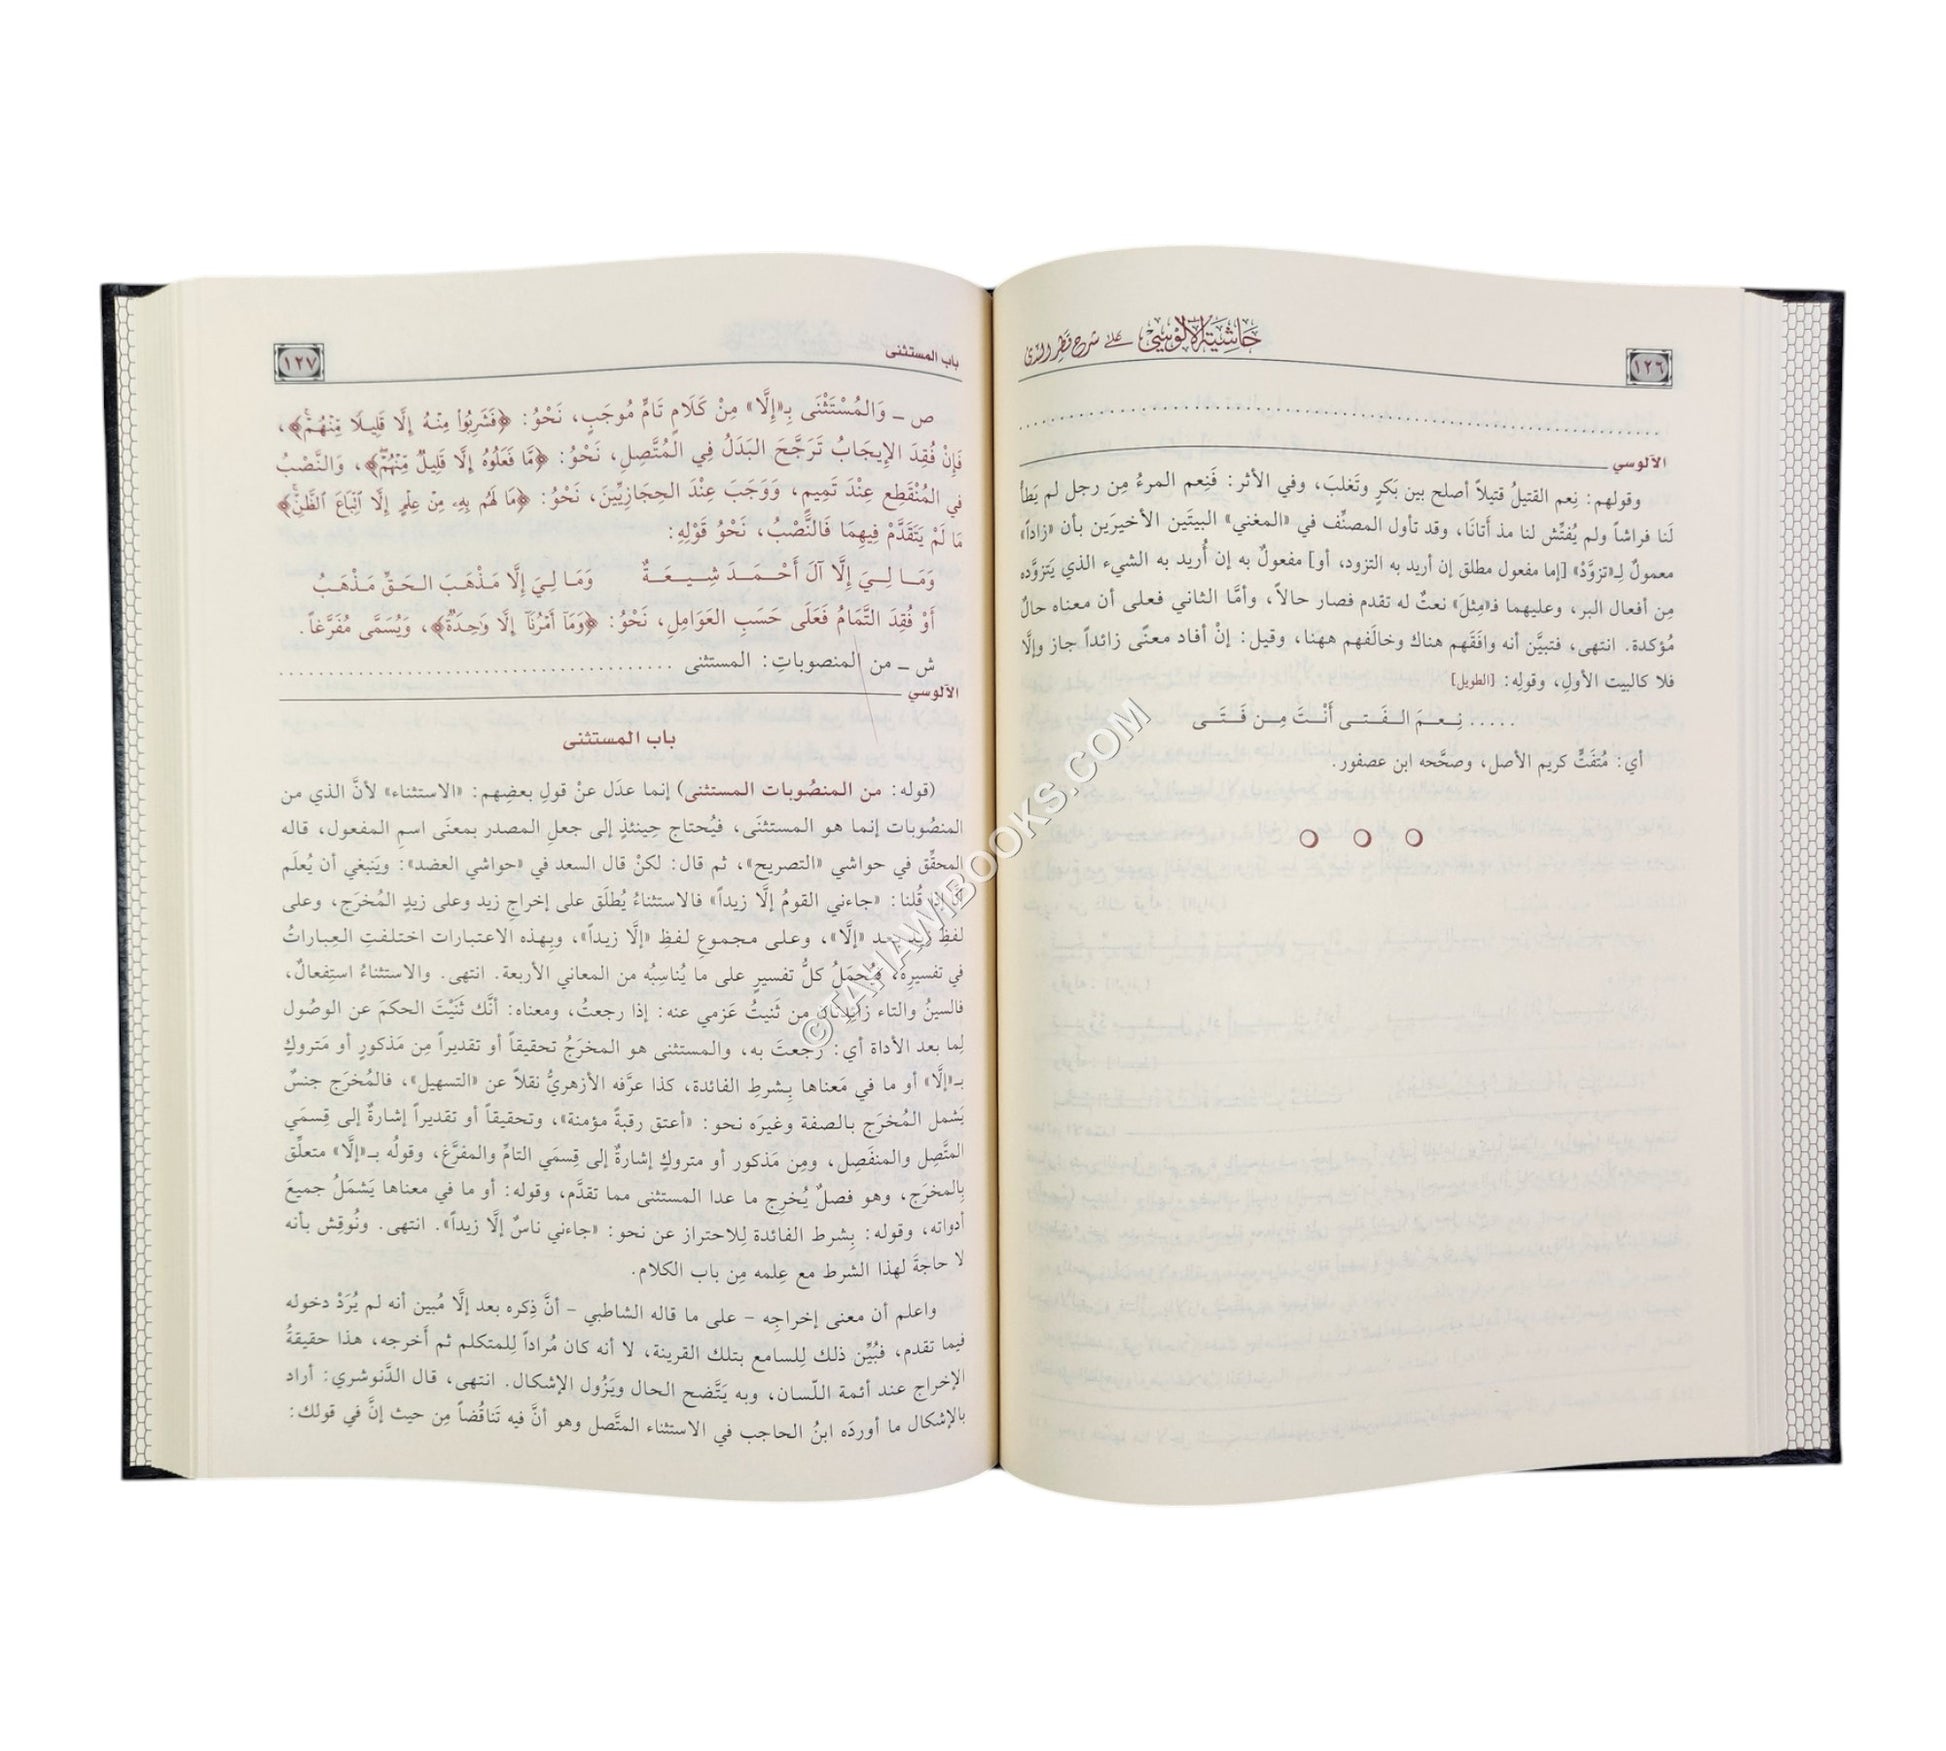 ١٢٦
حاشية الآلوسي على شرح قطر الندى
الآلوسي
وقولهم: نِعم القتيلُ قتيلاً أصلح بين بَكرٍ وتَغلبَ، وفي الأثر: فَنِعم المرءُ مِن رجل لم يَطأ
لَنا فراشاً ولم يُفتِّش لنا مذ أتانَا، وقد تأول المصنِّف في «المغني» البيتَين الأخيرَين بأن «زاداً»
معمولٌ لِـ«تزوَّدْ» [إما مفعول مطلق إن أريد به التزود، أو] مفعولٌ به إن أُريد به الشيء الذي يَتزوَّده
مِن أفعال البر، وعليهما فـ«مِثلَ» نعتٌ له تقدم فصار حالاً، وأمَّا الثاني فعلى أن معناه حالٌ
مُؤكدة. انتهى، فتبيَّن أنه وافَقَهم هناك وخالَفهم ههنا، وقيل: إنْ أفاد معنًى زائداً جاز وإلَّا
فلا كالبيت الأولِ، وقولِه: [الطويل]
..... نِـعـمَ الـفَـتـى أَنْـتَ مِـن فَـتَـى
أي: مُتفَتٍّ كريم الأصل، وصحَّحه ابن عصفور.
باب المستثنى
١٢٧
ص ـ وَالمُسْتَثْنَى بِـ«إِلَّا» مِنْ كَلَامٍ تَامٍّ مُوجَبٍ، نَحْوُ: ﴿فَشَرِبُوا۟ مِنْهُ إِلَّا قَلِيلًا مِّنْهُمْ﴾،
فَإِنْ فُقِدَ الإِيجَابُ تَرَجَّحَ البَدَلُ فِي المُتَّصِلِ، نَحْوُ: ﴿مَّا فَعَلُوهُ إِلَّا قَلِيلٌ مِّنْهُمْ﴾، وَالنَّصْبُ
فِي المُنْقَطِعِ عِنْدَ تَمِيمٍ، وَوَجَبَ عِنْدَ الحِجَازِيِّينَ، نَحْوُ: ﴿مَا لَهُم بِهِۦ مِنْ عِلْمٍ إِلَّا ٱتِّبَاعَ ٱلظَّنِّ﴾
مَا لَمْ يَتَقَدَّمْ فِيهِمَا فَالنَّصْبُ، نَحْوُ قَوْلِهِ:
وَمَـا لِـيَ إِلَّا آلَ أَحْـمَـدَ شِـيـعَـةٌ وَمَـا لِيَ إِلَّا مَـذْهَبَ الـحَـقِّ مَـذْهَبُ
أَوْ فُقِدَ التَّمَامُ فَعَلَى حَسَبِ العَوَامِلِ، نَحْوُ: ﴿وَمَآ أَمْرُنَآ إِلَّا وَٰحِدَةٌ﴾، وَيُسَمَّى مُفَرَّغاً.
ش ـ من المنصوباتِ: المستثنى ........................................
الآلوسي
باب المستثنى
(قوله: من المنصُوبات المستثنى) إنما عدَل عنْ قولِ بعضِهم: «الاستثناء» لأنَّ الذي من
المنصُوبات إنما هو المستثنَى، فيُحتاج حِينئذٍ إلى جعلِ المصدر بمعنَى اسمِ المفعول، قاله
المحقِّق في حواشي «التصريح»، ثم قال: لكنْ قال السعد في «حواشي العضد»: ويَنبغي أن يُعلَم
أنَّا إذا قُلنا: «جاءني القومُ إلَّا زيداً» فالاستثناءُ يُطلَق على إخراجِ زيد وعلى زيدٍ المُخرَج، وعلى
لفظِ زيدٍ بعد «إلَّا»، وعلى مجموعِ لفظِ «إلَّا زيداً»، وبِهذه الاعتبارات اختلفتِ العِباراتُ
في تفسيرِه، فيُحمَلُ كلُّ تفسيرٍ على ما يُناسِبُه من المعاني الأربعة. انتهى. والاستثناءُ استِفعالٌ،
فالسينُ والتاء زائدتان من ثَنيتُ عَزمي عنه: إذا رجعتُ، ومعناه: أنَّك ثَنَيْتَ الحكمَ عن الوصُول
لِما بعد الأداة أي: رَجعتَ به، والمستثنى هو المخرَجُ تحقيقاً أو تقديراً مِن مَذكورٍ أو مَتروكٍ
بـ«إلَّا» أو ما في مَعناها بِشرطِ الفائدة، كذا عرَّفه الأزهريُّ نقلاً عن «التسهيل»، فالمُخرَج جنسٌ
يَشمل المُخرَج بالصفة وغيرَه نحو: «أعتق رقبةً مؤمنة»، وتحقيقاً أو تقديراً إشارةٌ إلى قِسمَي
المتَّصِل والمنفَصِل، ومِن مَذكور أو متروكٍ إشارةٌ إلى قِسمَي التامِّ والمفرَّغ، وقولُه بـ«إلَّا» متعلِّق
بِالمخرَج، وهو فصلٌ يُخرِج ما عدا المستثنى مما تقدَّم، وقوله: أو ما في معناها يَشمَلُ جميعَ
أدواته، وقوله: بِشرط الفائدة لِلاحتراز عن نحو: «جاءني ناسٌ إلَّا زيداً». انتهى. ونُوقِش بأنه
لا حاجةَ لهذا الشرط مع عِلمه مِن باب الكلام.
واعلم أن معنى إخراجِه - على ما قاله الشاطبي - أنَّ ذِكره بعد إلَّا مُبين أنه لم يُرَدْ دخوله
فيما تقدم، فبُيِّن ذلك لِلسامع بتلك القرينة، لا أنه كان مُراداً لِلمتكلم ثم أَخرجه، هذا حقيقةُ
الإخراج عند أئمة اللّسان، وبه يَتَّضح الحال ويَزُول الإشكال. انتهى، قال الدَّنوشري: أراد
بالإشكال ما أوردَه ابنُ الحاجب في الاستثناء المتَّصل وهو أنَّ فيه تَناقُضاً مِن حيث إنَّ في قولك:
©TAHAWIBOOKS.COM